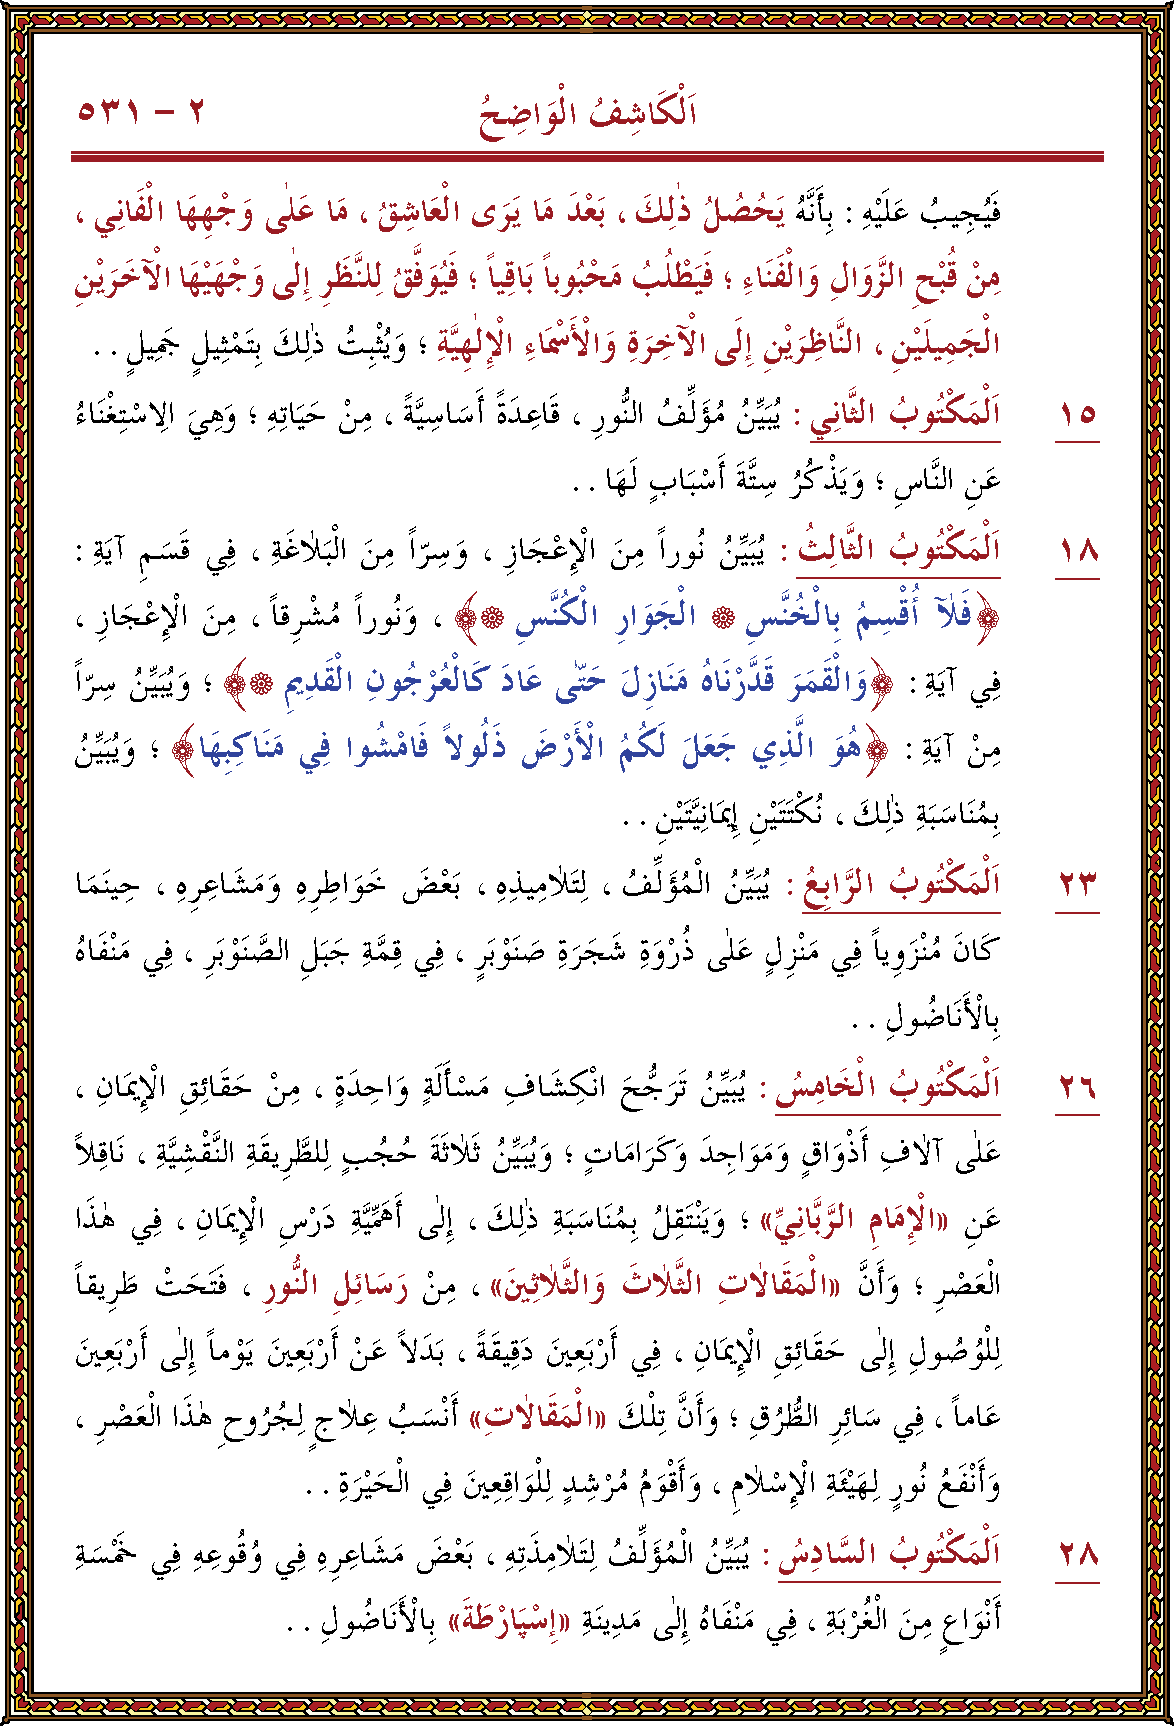 ٢ – ٥٣١
اَلْكَاشِفُ الْوَاضِحُ
فَيُجِيبُ عَلَيْهِ : بِأَنَّهُ يَحُصُلُ ذٰلِكَ ، بَعْدَ مَا يَرَى الْعَاشِقُ ، مَا عَلٰى وَجْهِهَا الْفَانِي ،
مِنْ قُبْحِ الزَّوَالِ وَالْفَنَاءِ ؛ فَيَطْلُبُ مَحْبُوباً بَاقِياً ؛ فَيُوَفَّقُ لِلنَّظَرِ إِلٰى وَجْهَيْهَا الْآخَرَيْنِ
الْجَمِيلَيْنِ ، النَّاظِرَيْنِ إِلَى الْآخِرَةِ وَالْأَسْمَاءِ الْإِلٰهِيَّةِ ؛ وَيُثْبِتُ ذٰلِكَ بِتَمْثِيلٍ جَمِيلٍ . .
١٥ اَلْمَكْتُوبُ الثَّانِي : يُبَيِّنُ مُؤَلِّفُ النُّورِ ، قَاعِدَةً أَسَاسِيَّةً ، مِنْ حَيَاتِهِ ؛ وَهِيَ الِاسْتِغْنَاءُ
عَنِ النَّاسِ ؛ وَيَذْكُرُ سِتَّةَ أَسْبَابٍ لَهَا . .
١٨ اَلْمَكْتُوبُ الثَّالِثُ : يُبَيِّنُ نُوراً مِنَ الْإِعْجَازِ ، وَسِرّاً مِنَ الْبَلَاغَةِ ، فِي قَسَمِ آيَةِ :
﴿فَلَٓا أُقْسِمُ بِالْخُنَّسِ ۞ الْجَوَارِ الْكُنَّسِ ۞﴾ ، وَنُوراً مُشْرِقاً ، مِنَ الْإِعْجَازِ ،
فِي آيَةِ : ﴿وَالْقَمَرَ قَدَّرْنَاهُ مَنَازِلَ حَتّٰى عَادَ كَالْعُرْجُونِ الْقَدِيمِ ۞﴾ ؛ وَيُبَيِّنُ سِرّاً
مِنْ آيَةِ : ﴿هُوَ الَّذِي جَعَلَ لَكُمُ الْأَرْضَ ذَلُولاً فَامْشُوا فِي مَنَاكِبِهَا﴾ ؛ وَيُبَيِّنُ
بِمُنَاسَبَةِ ذٰلِكَ ، نُكْتَتَيْنِ إِيمَانِيَّتَيْنِ . .
٢٣ اَلْمَكْتُوبُ الرَّابِعُ : يُبَيِّنُ الْمُؤَلِّفُ ، لِتَلَامِيذِهِ ، بَعْضَ خَوَاطِرِهِ وَمَشَاعِرِهِ ، حِينَمَا
كَانَ مُنْزَوِياً فِي مَنْزِلٍ عَلٰى ذُرْوَةِ شَجَرَةِ صَنَوْبَرٍ ، فِي قِمَّةِ جَبَلِ الصَّنَوْبَرِ ، فِي مَنْفَاهُ
بِالْأَنَاضُولِ . .
٢٦ اَلْمَكْتُوبُ الْخَامِسُ : يُبَيِّنُ تَرَجُّحَ انْكِشَافِ مَسْأَلَةٍ وَاحِدَةٍ ، مِنْ حَقَائِقِ الْإِيمَانِ ،
عَلٰى آلَافِ أَذْوَاقٍ وَمَوَاجِدَ وَكَرَامَاتٍ ؛ وَيُبَيِّنُ ثَلَاثَةَ حُجُبٍ لِلطَّرِيقَةِ النَّقْشِيَّةِ ، نَاقِلاً
عَنِ «الْإِمَامِ الرَّبَّانِيِّ» ؛ وَيَنْتَقِلُ بِمُنَاسَبَةِ ذٰلِكَ ، إِلٰى أَهَمِّيَّةِ دَرْسِ الْإِيمَانِ ، فِي هٰذَا
الْعَصْرِ ؛ وَأَنَّ «الْمَقَالَاتِ الثَّلَاثَ وَالثَّلَاثِينَ» ، مِنْ رَسَائِلِ النُّورِ ، فَتَحَتْ طَرِيقاً
لِلْوُصُولِ إِلٰى حَقَائِقِ الْإِيمَانِ ، فِي أَرْبَعِينَ دَقِيقَةً ، بَدَلاً عَنْ أَرْبَعِينَ يَوْماً إِلٰى أَرْبَعِينَ
عَاماً ، فِي سَائِرِ الطُّرُقِ ؛ وَأَنَّ تِلْكَ «الْمَقَالَاتِ» أَنْسَبُ عِلَاجٍ لِجُرُوحِ هٰذَا الْعَصْرِ ،
وَأَنْفَعُ نُورٍ لِهَيْئَةِ الْإِسْلَامِ ، وَأَقْوَمُ مُرْشِدٍ لِلْوَاقِعِينَ فِي الْحَيْرَةِ . .
٢٨ اَلْمَكْتُوبُ السَّادِسُ : يُبَيِّنُ الْمُؤَلِّفُ لِتَلَامِذَتِهِ ، بَعْضَ مَشَاعِرِهِ فِي وُقُوعِهِ فِي خَمْسَةِ
أَنْوَاعٍ مِنَ الْغُرْبَةِ ، فِي مَنْفَاهُ إِلٰى مَدِينَةِ «إِسْپَارْطَةَ» بِالْأَنَاضُولِ . .